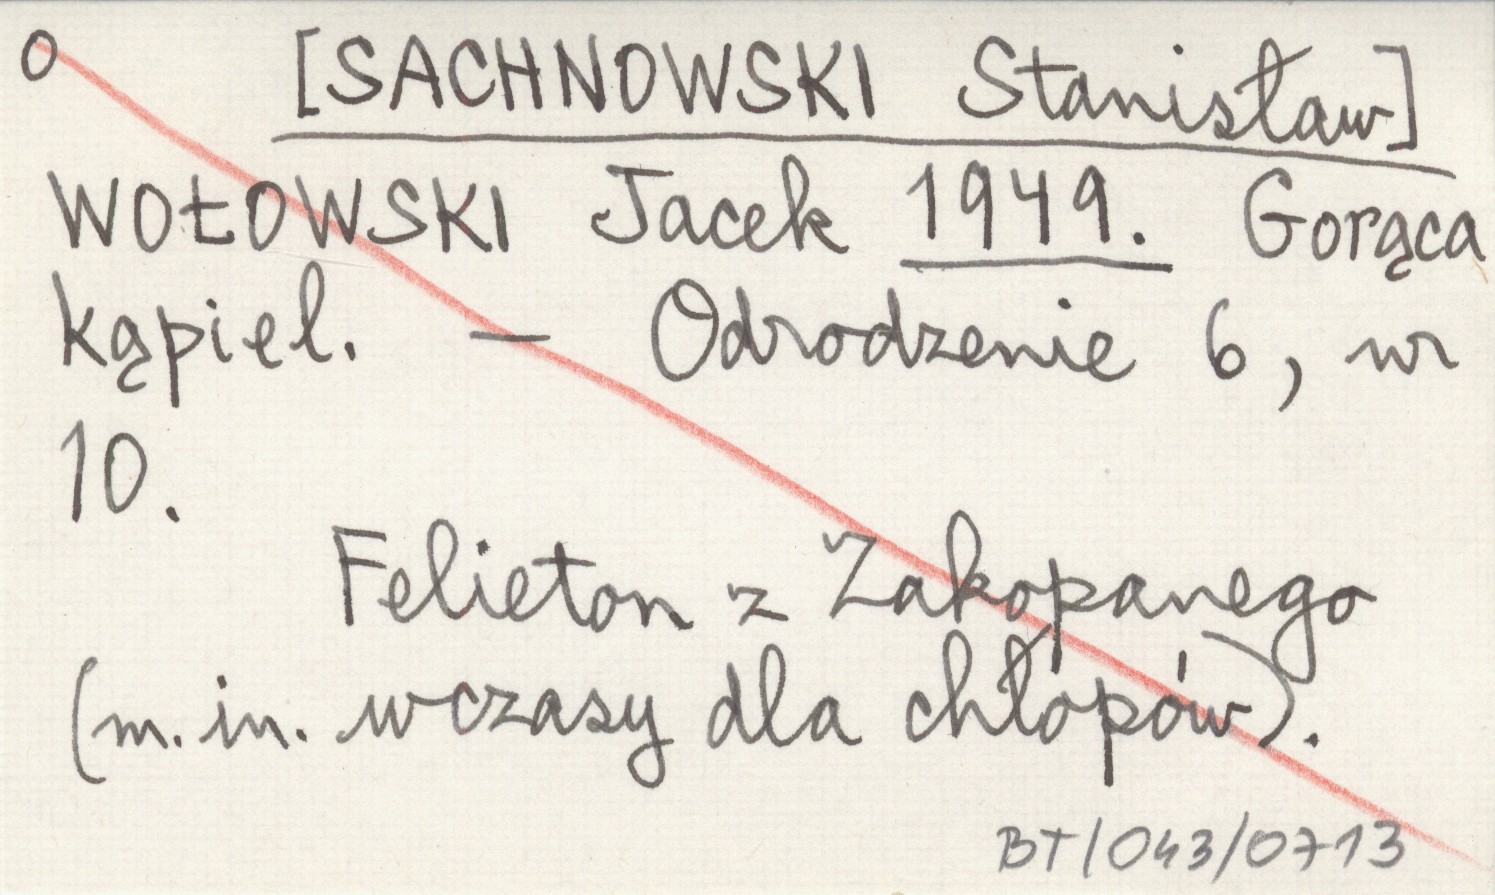 o [SACHNOWSKI Stanisław]
WOŁOWSKI Jacek 1949. Gorąca
kąpiel. — Odrodzenie 6, nr
10.
Felieton z Zakopanego
(m.in. wczasy dla chłopów).
BT/043/0713